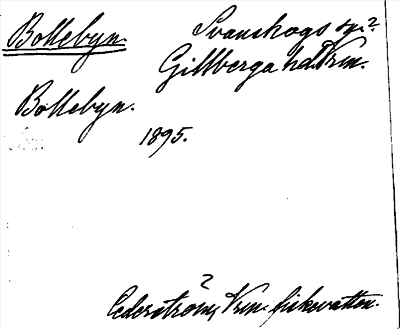 Bollebyn. Svanskogs sn?
Gillberga hd. Vrm.
Bollebyn.
1895.
?
Cederström, Vrm. fiskevatten.